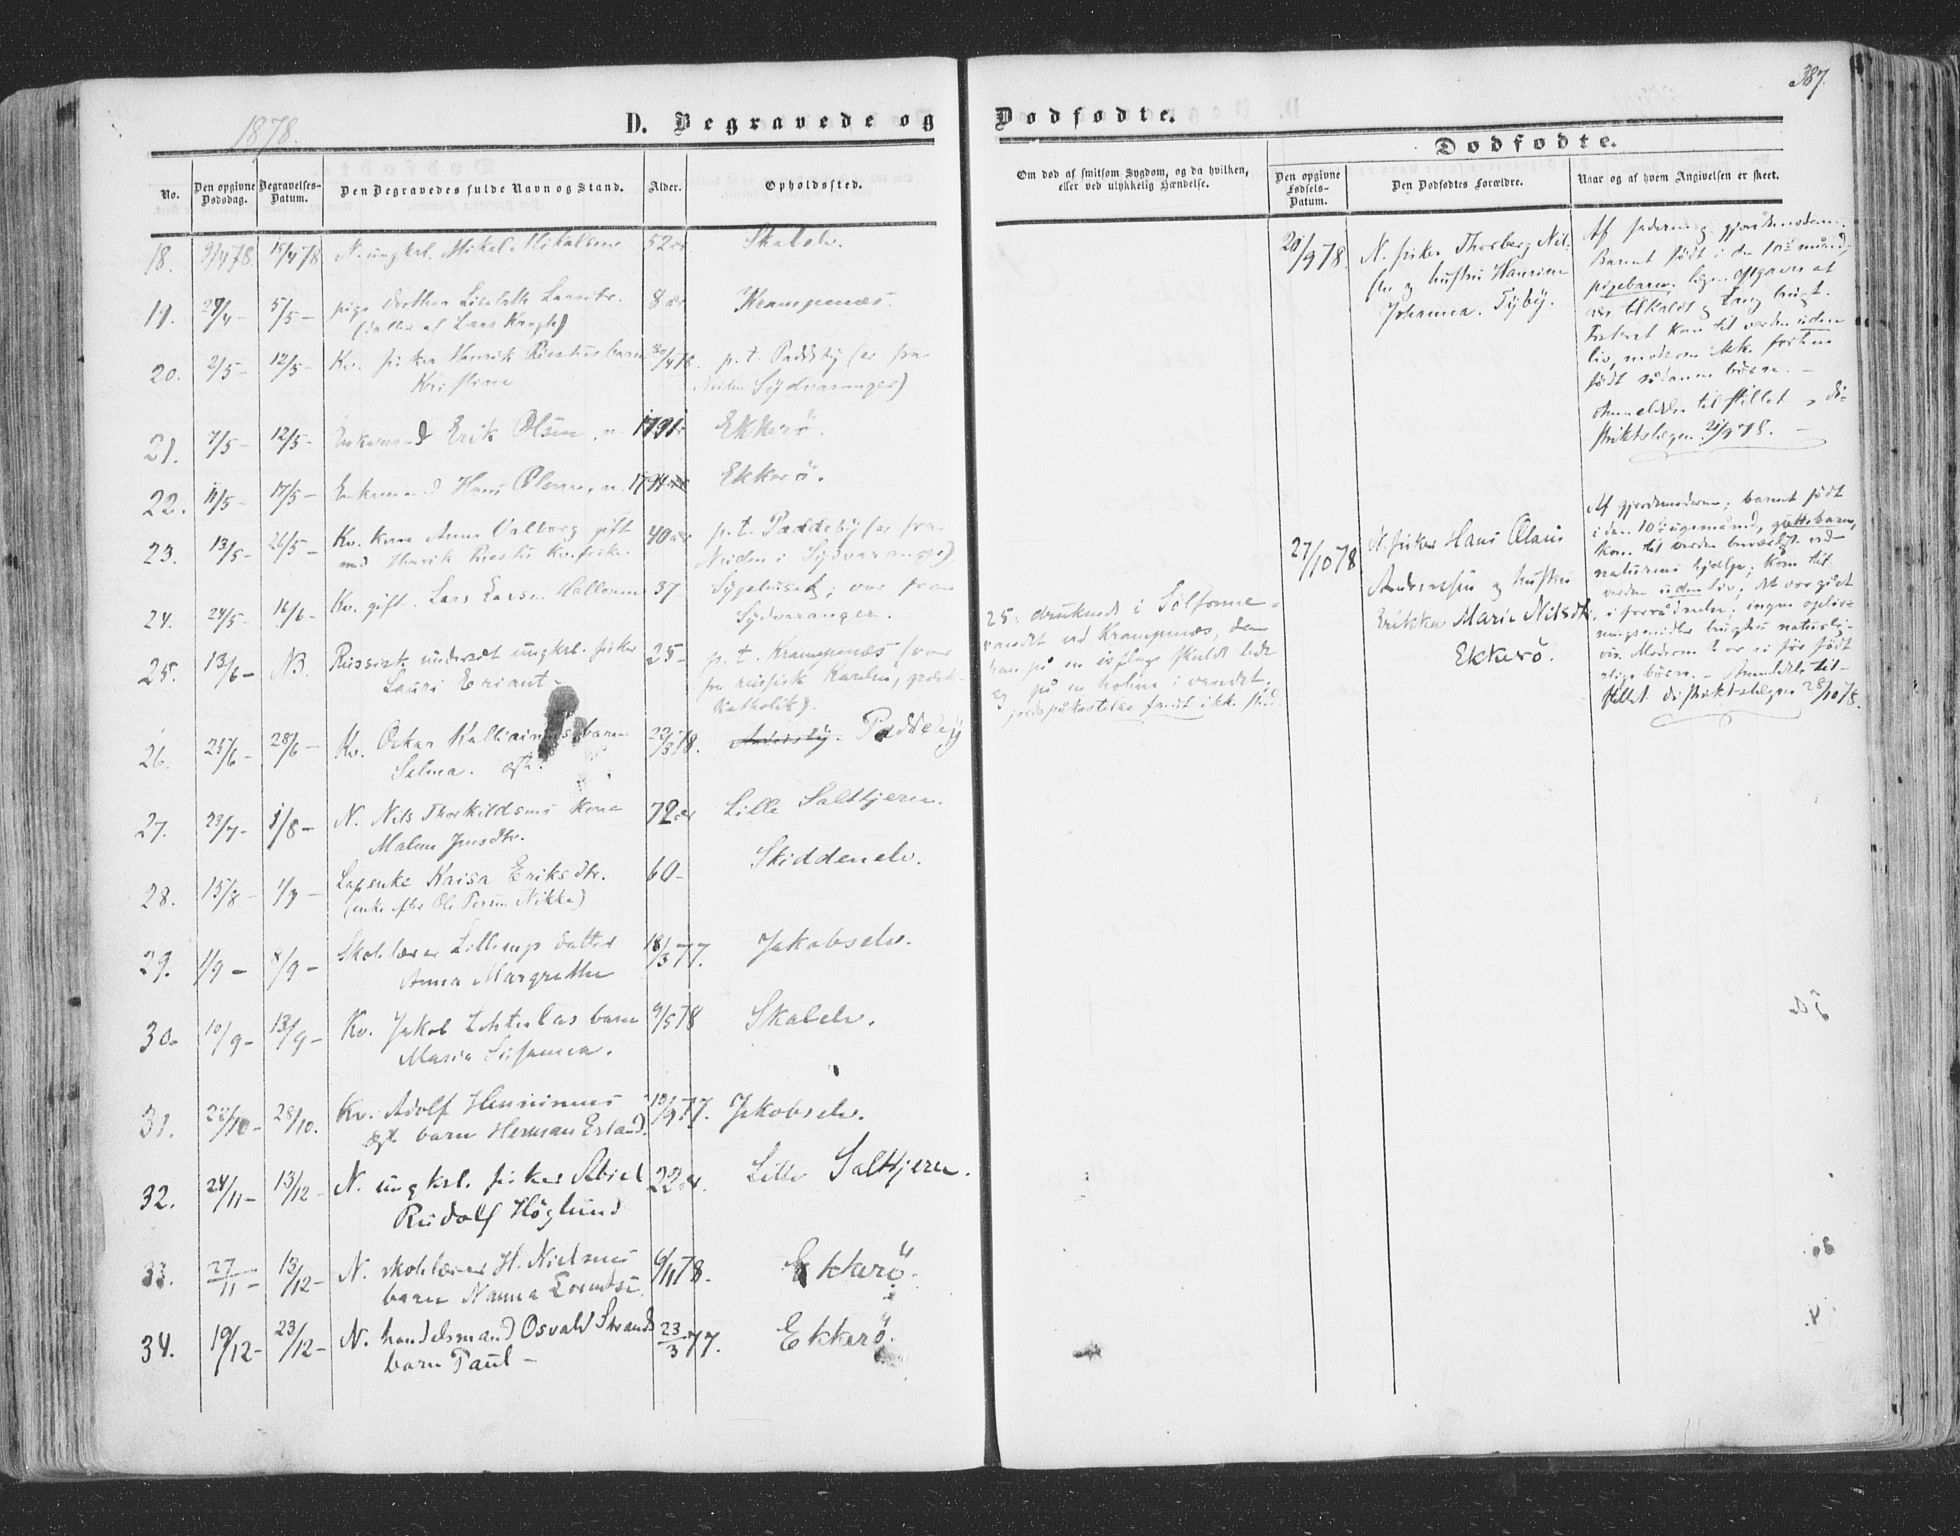 387.
1878.
D. Begravede og Dødfødte.
Dødfødte.
No.
Den opgivne Dødsdag.
Begravelses-Datum.
Den Begravedes fulde Navn og Stand.
Alder.
Opholdssted.
Om død af smitsom Sygdom, og da hvilken,
eller ved ulykkelig Hændelse.
Den opgivne Fødsels-Datum.
Den Dødfødtes Forældre.
Naar og af hvem Angivelsen er skeet.
18. 9/4 78. 15/4 78 N. ungkrl. Mikal Mikalsen 52 år Skalelv.
19. 27/4 - 5/5 - pige Dorthea Lisbeth Larsdtr. 8 år Krampenæs.
(datter af Lars
20. 2/5 - 12/5 - Kv. fisker Henrik barn 30/4 78. p. t. Paddeby (er fra
Kristine Neiden Sydvaranger)
21. 7/5 - 12/5 - Enkemand Erik Olsen, n. 1791 Ekkerö.
22. 11/5 - 17/5 - Enkemand Hans Olsen, n. 1794 Ekkerö.
23. 13/5 - 26/5 - Kv. kone Anna Valborg gift 40 år p. t. Paddeby (er fra
med Henrik kv. fisker Neiden i Sydvaranger)
24. 24/5 - 16/6 - Kv. gift. Lars Larsen 37 Sygehuset; var fra
Sydvaranger.
25. 13/6 - NB. Russisk undersåt ungkrl. fisker 25 - p. t. Krampenæs (var
Lauri Eriant - fra russisk Karelen, græsk-
katholik).
26. 25/6 - 28/6 - Kv. Oskar barn 22/3 78. Paddeby
Selma.
27. 23/7 - 1/8 - N. Nils Thorkildsens kone 72 år Lille Saltkjern.
Malene Jensdtr.
28. 15/8 - 1/9 - Lapenke Kaisa Eriksdtr. 60 - Skiddenelv.
(enke efter Ole Persen Nikka)
29. 1/9 - 8/9 - Skolelærer datter 18/3 77. Jakobselv.
Anna Margrethe
30. 10/9 - 13/9 - Kv. Jakob barn 9/5 78 Skalelv.
Maria Susanna.
31. 22/10 - 28/10. Kv. Adolf 10/9 77. Jakobselv.
ægt. barn Herman Erland.
32. 24/11 - 13/12 - N. ungkrl. fisker Abiel 22 år. Lille Saltkjern.
Rudolf Höglund
33. 27/11 - 13/12 - N. skolelærer H. Nielsens 6/11 78. Ekkerö.
barn Nanna
34. 19/12 - 23/12 - N. handelsmand Osvald Strands 23/3 77. Ekkerö.
barn Paul -
25. druknede i
vandet ved Krampenæs, da
han på en skulde lede
og på en holme i vandet.
jordpåkastelse fandt ikke sted.
20/9 78. N. fisker Thorberg Nil-
sen og hustru Hansine
Johanna. Tyby.
Af faderen og gjordmoderen.
Barnet født i den 10de måned,
pigebarn.
var tilkaldt og
Fosteret kom til verden uden
liv, moderen ikke før
født sådanne børn. -
Anmeldelse tilstillet di-
striktslægen 21/9 78. -
27/10 78 N. fisker Hans Olaus
Andreassen og hustru
Erikka Marie Nilsdtr.
Ekkerö.
Af gjordmoderen; barnet født
i den 10de måned, guttebarn,
kom til verden ved
naturens hjælp; kom til
verden uden liv; det var gået
i forrådnelse; ingen opliv-
ningsmidler brugtes naturlig-
vis. Moderen har ei før født
slige børn. - Anmeldelse til-
stillet distriktslægen 28/10 78.